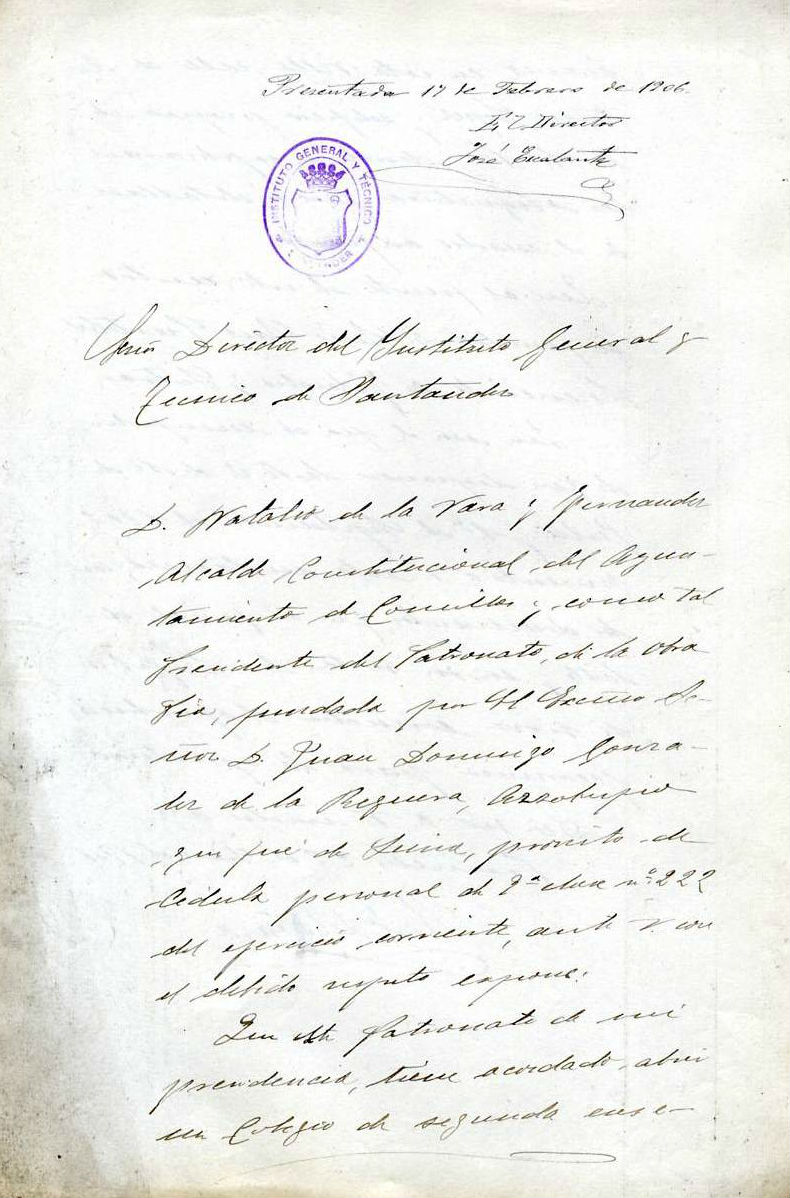 Presentada 17 de Febrero de 1906.
El Director
José Escalante
INSTITUTO GENERAL Y TÉCNICO
Señor Director del Instituto General y
Tecnico de Santander
D. Natalio de la Vara y Fernandez
Alcalde Constitucional del Ayun-
tamiento de Comillas y como tal
Presidente del Patronato, de la obra
Pia, fundada por el Excmo Se-
ñor D. Juan Domingo Gonza-
lez de la Reguera, Arzobispo
que fué de Lima, provisto de
Cédula personal de 9ª clase nº 222
del ejercicio corriente, ante V con
el debido respeto expone:
Que este Patronato de mi
presidencia, tiene acordado, abrir
un Colegio de segunda ense-